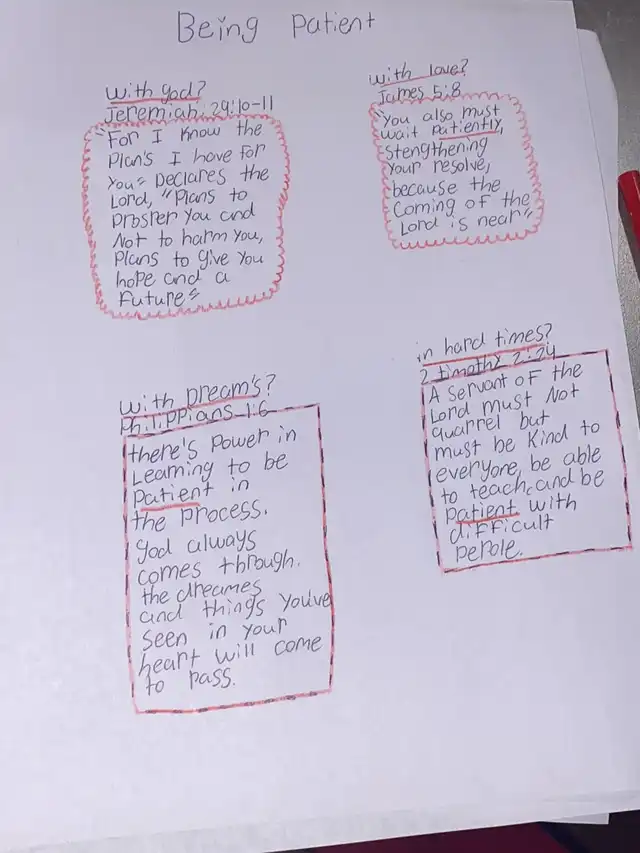 Being Patient
With god?
Jeremiah 29:10-11
"For I Know the
Plan's I have for
You" Declares the
Lord, "Plans to
Prosper You and
Not to harm You,
Plans to give You
hope and a
Future"
with love?
James 5:8
"You also must
wait patiently,
stengthening
Your resolve,
because the
Coming of the
Lord is near"
With Dream's?
Philippians 1:6
there's Power in
Learning to be
Patient in
the Process.
God always
comes through.
the dreames
and things You've
seen in your
heart will come
to pass.
in hard times?
2 timothy 2:24
A Servant of the
Lord must Not
quarrel but
must be Kind to
everyone, be able
to teach, and be
Patient with
difficult
perole.